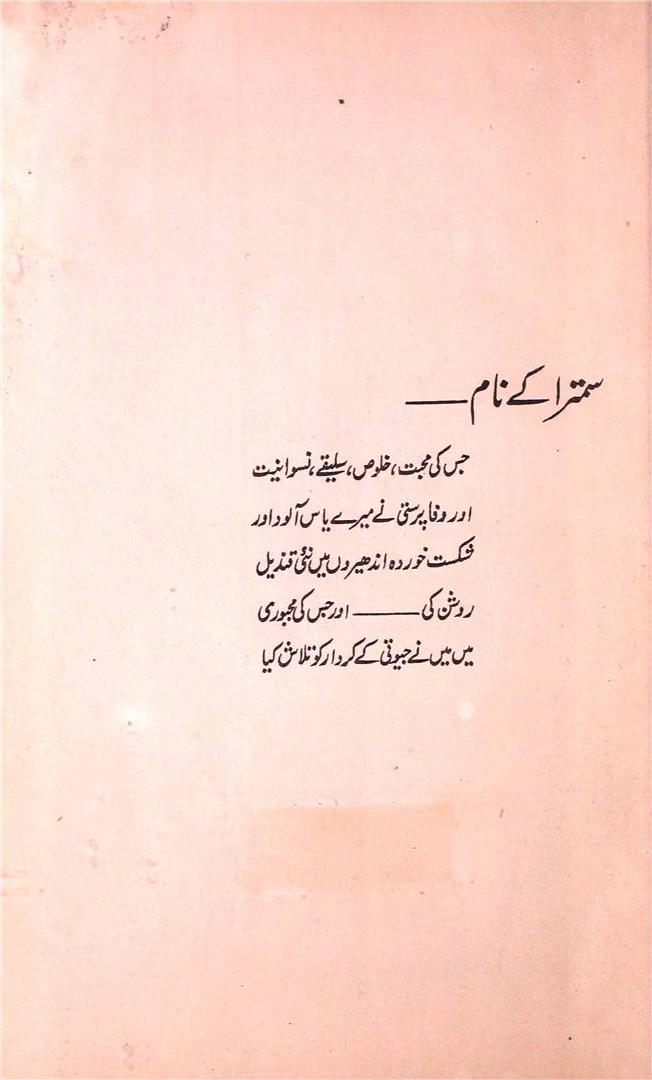 سمترا کے نام ——
جس کی محبت، خلوص، سلیقے، نسوانیت
اور وفا پرستی نے میرے یاس آلود اور
شکست خوردہ اندھیروں میں نئی قندیل
روشن کی —— اور جس کی مجبوری
میں میں نے جیوتی کے کردار کو تلاش کیا